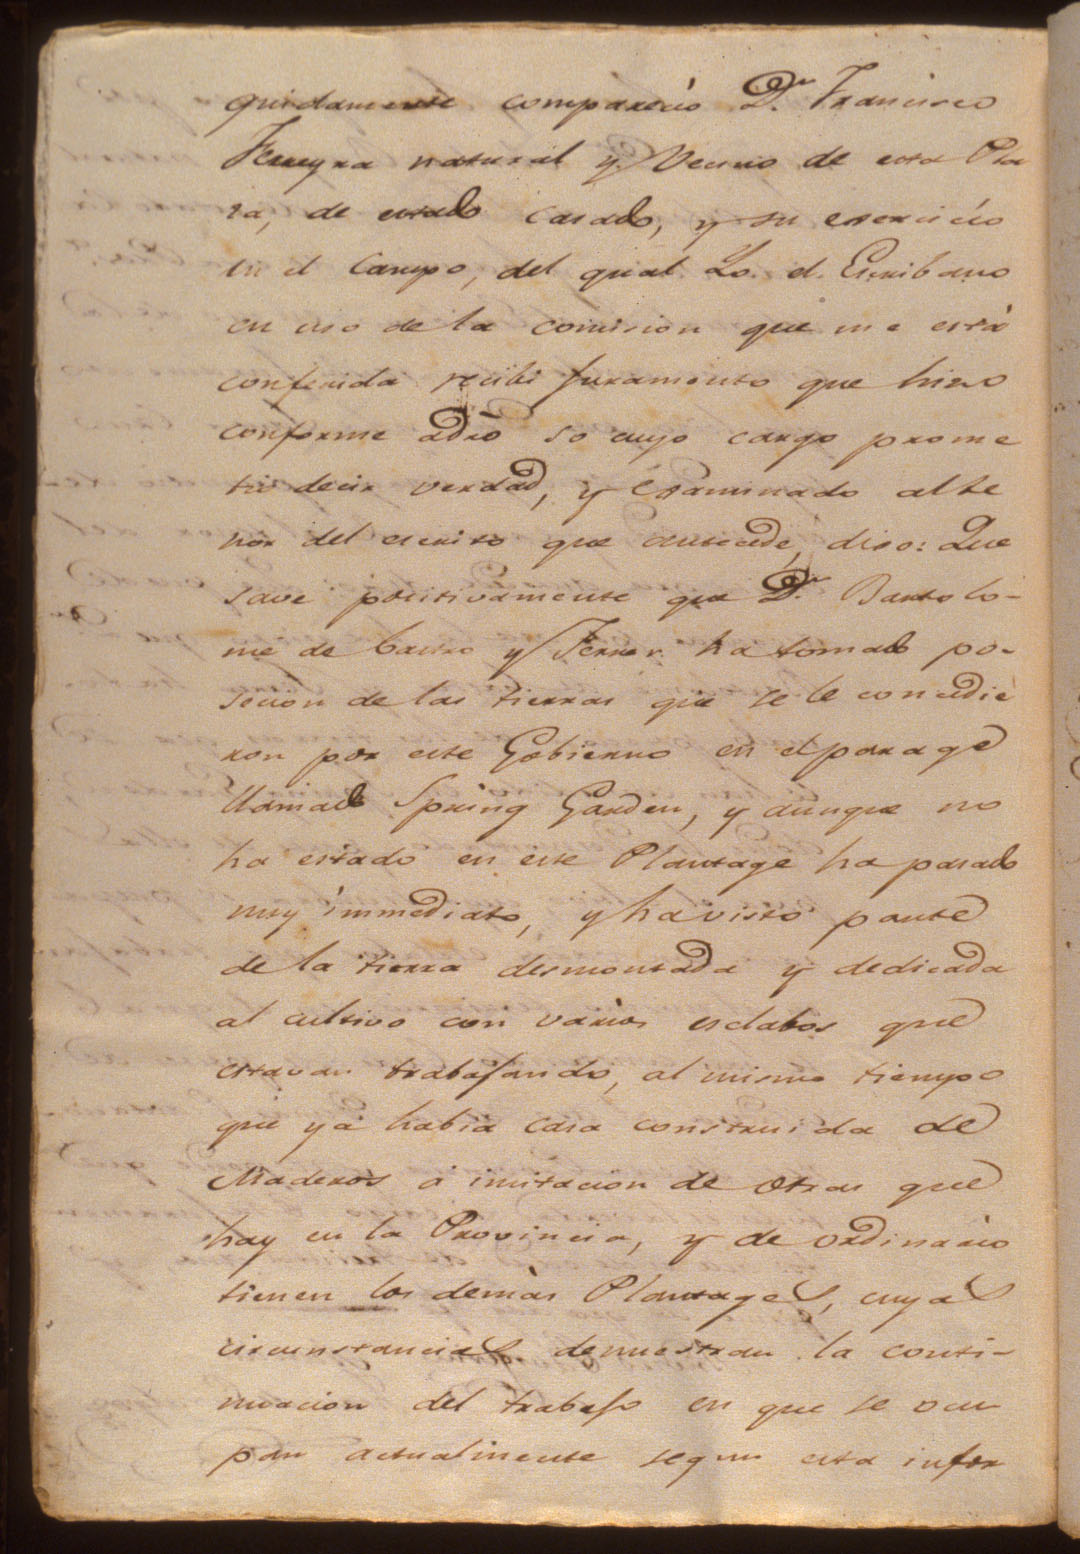 quidamente comparecio D.n Francisco
Ferreyra natural y Vecino de esta Pla
za, de estado casado, y su exercicio
en el Campo, del qual Yo el Escribano
en uso de la comision que me está
conferida recibi juramento que hizo
conforme adrõ so cuyo cargo prome
tio decir verdad, y Examinado al te
nor del escrito que antecede, dixo: Que
save positivamente que D.n Bartolo-
mé de Castro y Ferrer ha tomado po-
secion de las tierras que se le concedie
ron por este Gobierno en el parage
llamado Spring Garden, y aunque no
ha estado en este Plantage ha pasado
muy immediato, y ha visto parte
de la tierra desmontada y dedicada
al cultivo con varios esclabos que
estavan trabajando, al mismo tiempo
que ya habia casa construida de
Maderos á imitacion de otras que
hay en la Provincia, y de ordinario
tienen los demas Plantages, cuyas
circunstancias demuestran la conti-
nuacion del trabajo en que se ocu
pan actualmente segun esta infor